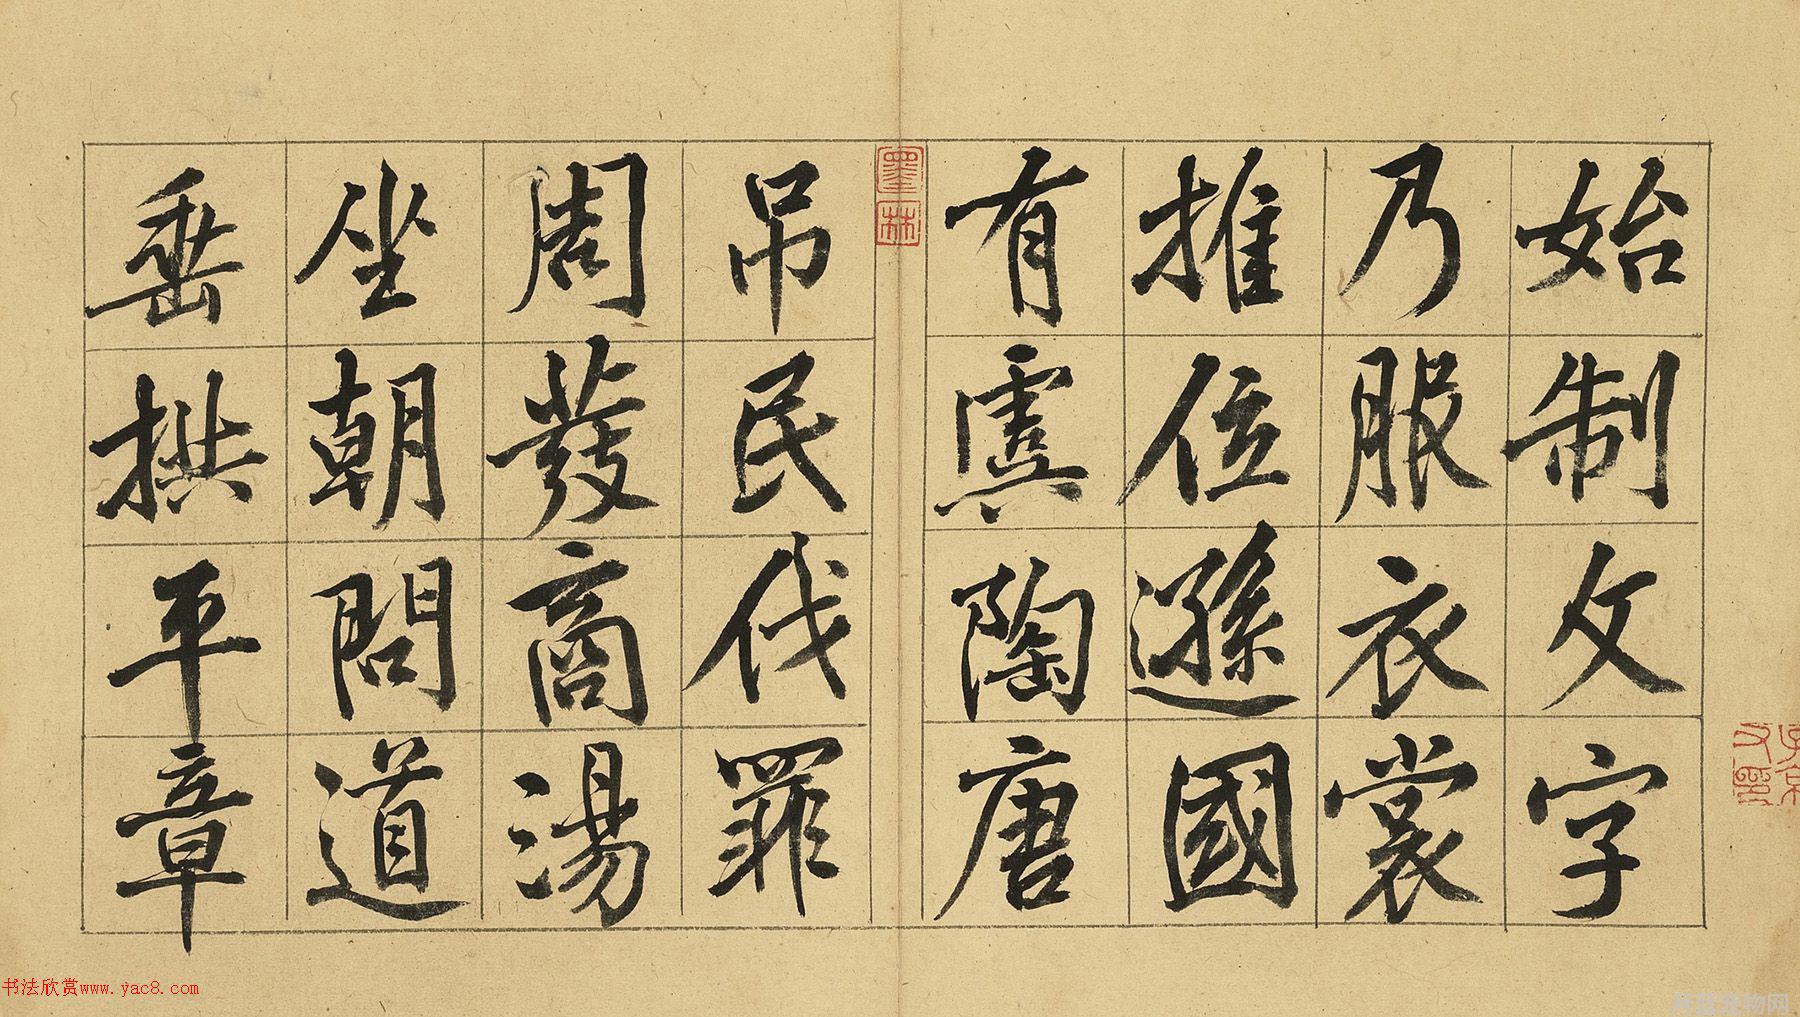 始制文字
乃服衣裳
推位遜國
有虞陶唐
吊民伐罪
周發商湯
坐朝問道
垂拱平章
墨林
书法欣赏www.yac8.com